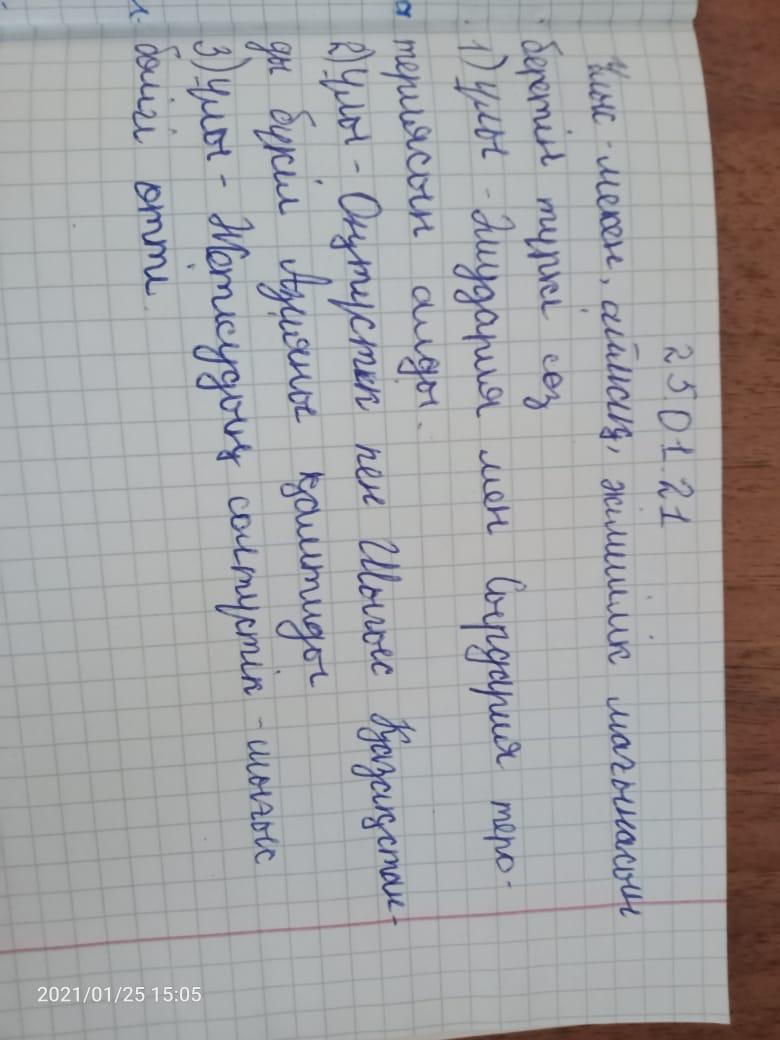 25.01.21
Ұлыс - мекен, аймақ, жілшілік мағынасын
беретін түркі сөз
1) Ұлы - Әмудария мен Сырдария теро-
териясын алды.
2) Ұлы - Оңтүстік пен Шығыс Қазақстан-
ды бүкіл Азияны қамтиды
3) Ұлы - Жетісудың солтүстік - шығыс
бөлігі өтті.
2021/01/25 15:05